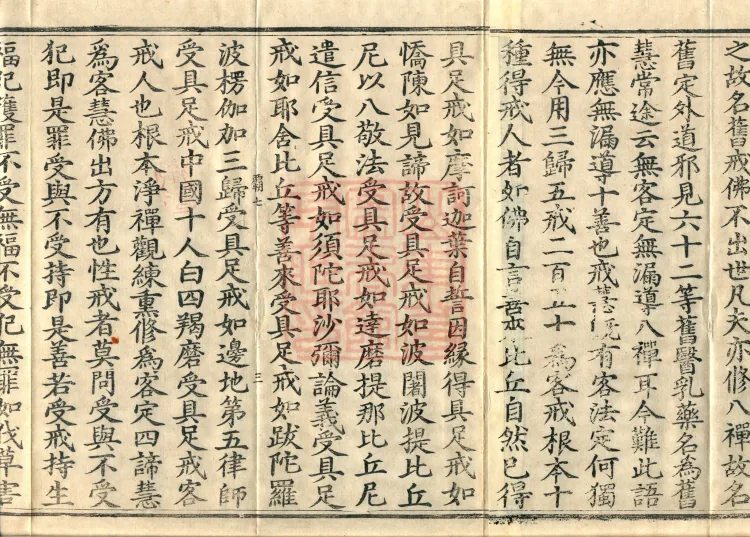 之故名舊戒佛不出世凡夫亦修八禪故名
舊定外道邪見六十二等舊醫乳藥名為舊
慧常途云無客定無漏導八禪耳今難此語
亦應無漏導十善也戒慧既有客法定何獨
無今用三歸五戒二百五十為客戒根本十
種得戒人者如佛自言善來比丘自然已得
具足戒如摩訶迦葉自誓因緣得具足戒如
憍陳如見諦故受具足戒如波闍波提比丘
尼以八敬法受具足戒如達磨提那比丘尼
遣信受具足戒如須陀耶沙彌論義受具足
戒如耶舍比丘等善來受具足戒如跋陀羅
霸七 三
波楞伽加三歸受具足戒如邊地第五律師
受具足戒中國十人白四羯磨受具足戒客
戒人也根本淨禪觀練熏修為客定四諦慧
為客慧佛出方有也性戒者莫問受與不受
犯即是罪受與不受持即是善若受戒持生
福犯獲罪不受無福不受犯無罪如伐草害